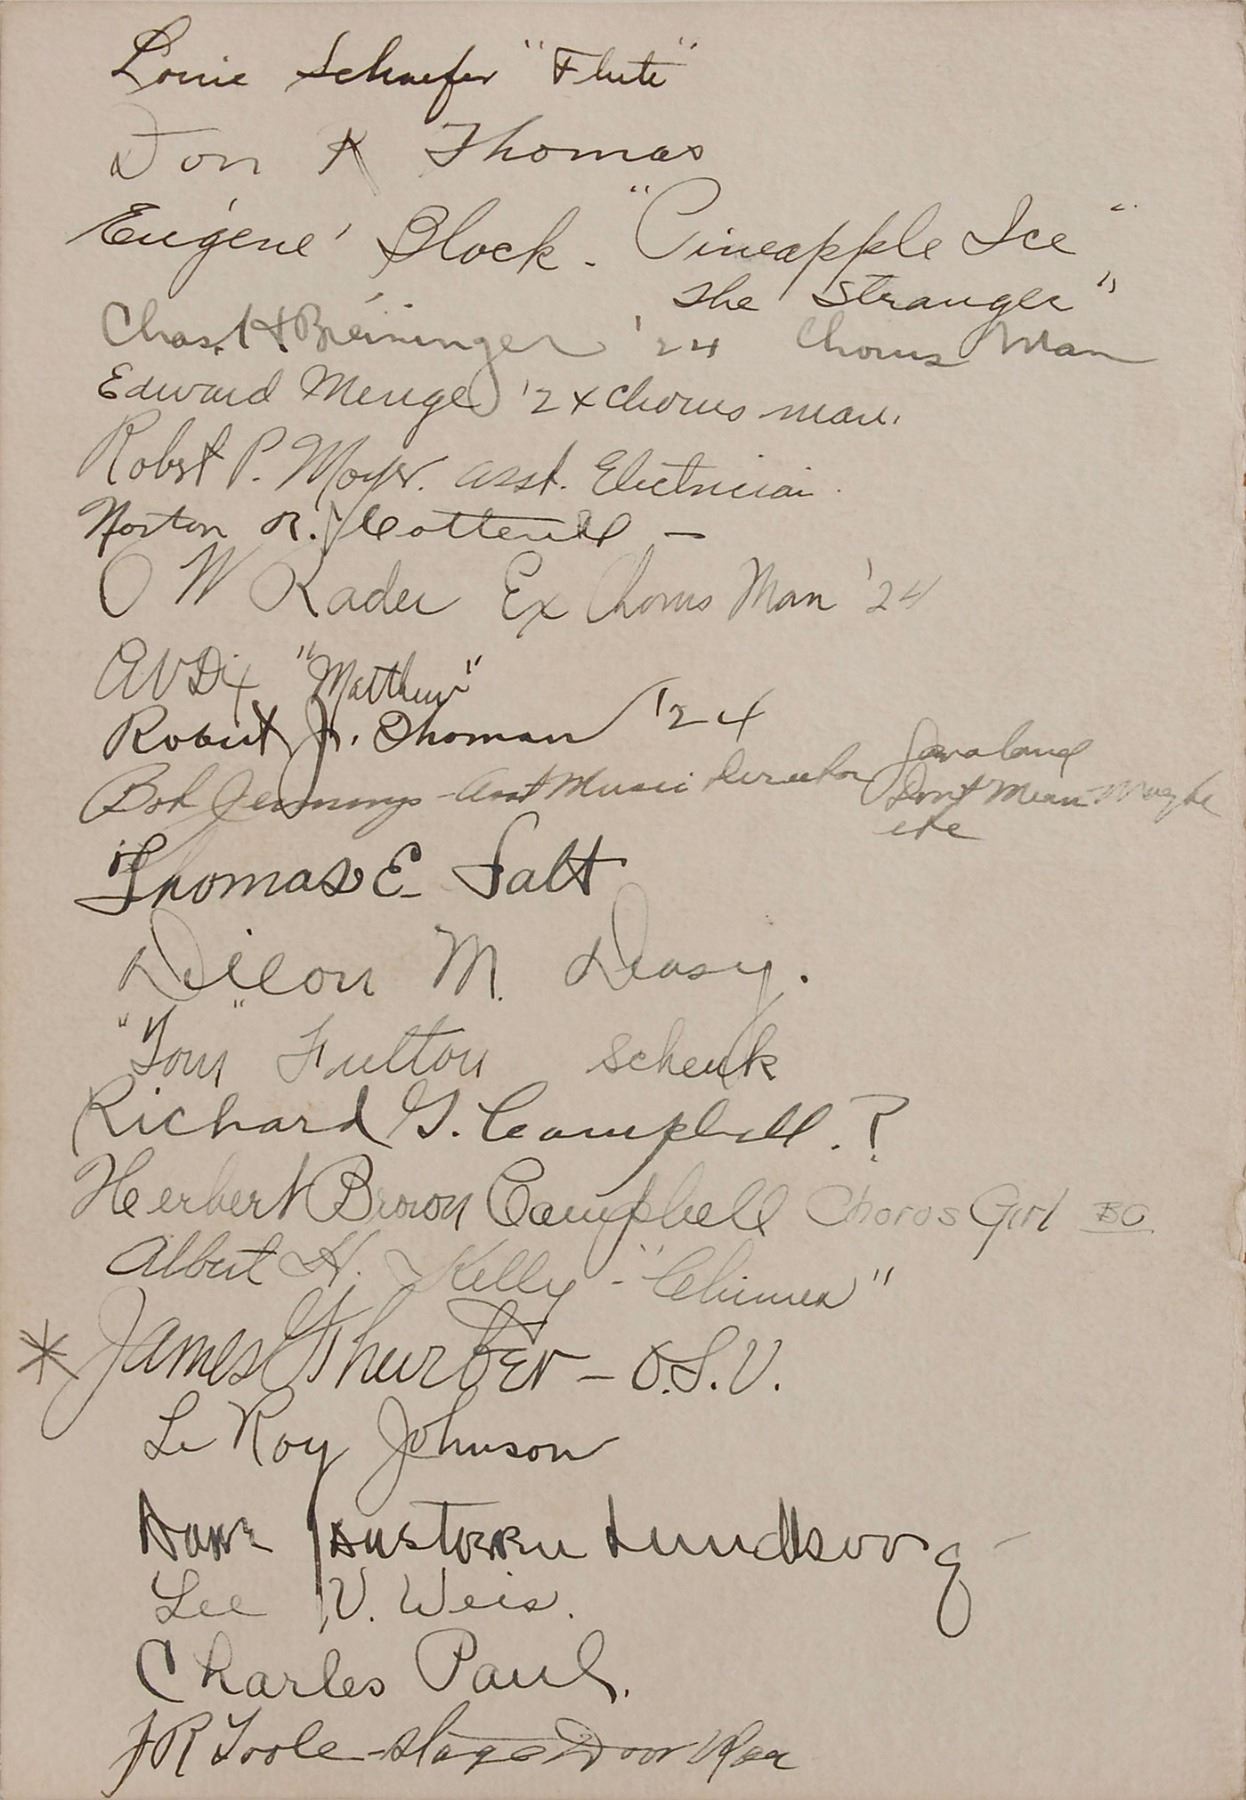 Louie Schaefer "Flute"
Don K Thomas
Eugene Block - "Pineapple Ice"
The Stranger"
Chas. H. Breininger '24 Chorus Man
Edward Menge '24 Chorus man.
Robert P. Moyer. asst. Electrician.
Norton R. Cotterill —
O W Rader Ex Chorus Man '24
A V Dix "Matthew"
Robert J. Thoman '24
Bob Jennings - Asst Music Director Javaland
Don't Mean Maybe
etc
Thomas E. Salt
Dillon M. Deasy.
"Tom" Fulton Schenk
Richard G. Campbell. ?
Herbert Brown Campbell Chorus Girl BO
Albert H. Kelly - "Chimea"
* James G Thurber — O.S.U.
Le Roy Johnson
Lee V. Weis.
Charles Paul.
J R Toole - Stage Door Man